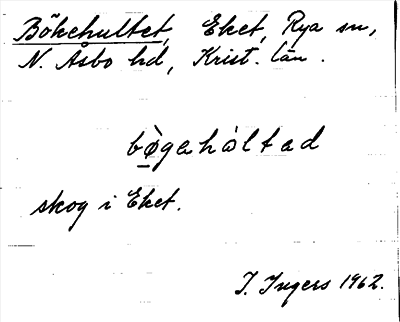 Bökehultet, Eket, Rya sn,
N. Åsbo hd, Krist. län.
bø̀gahåltad
skog i Eket.
I. Ingers 1962.